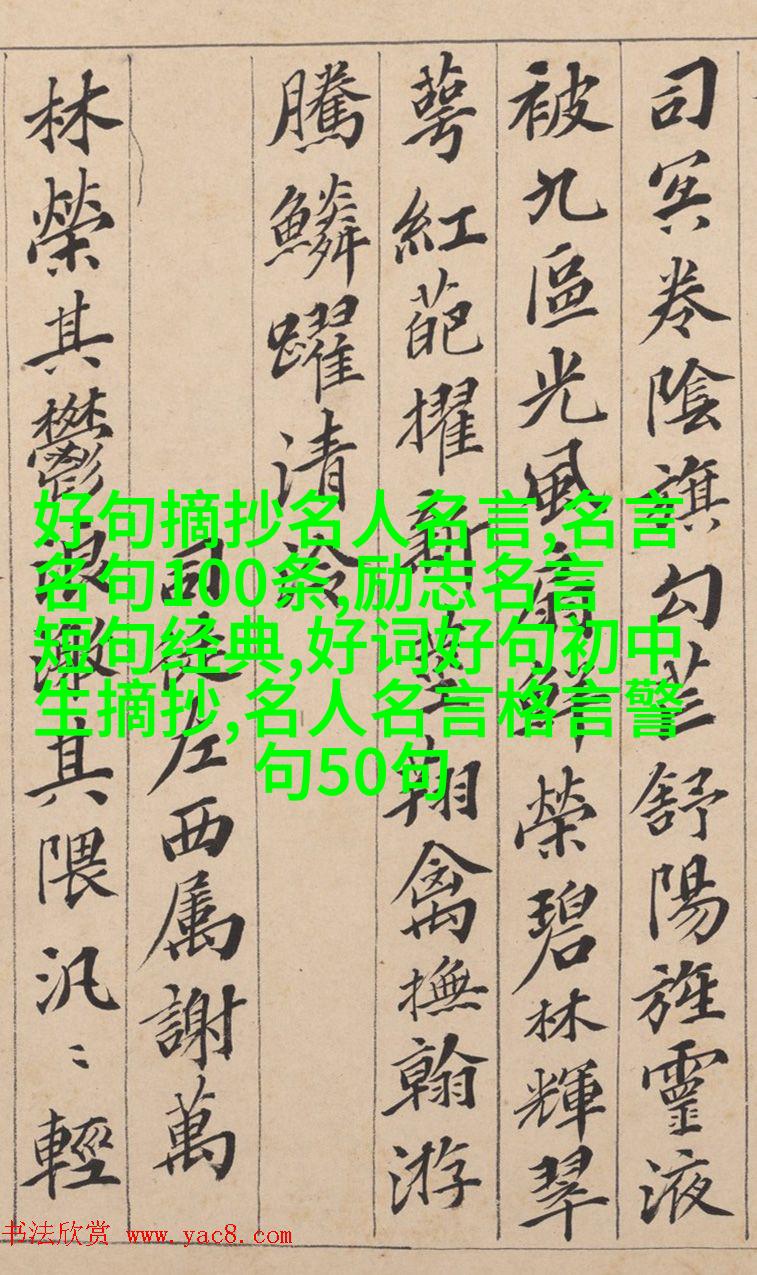 司冥卷陰旗勾芒舒陽旌靈液
被九區光風扇鮮榮碧林輝翠
萼紅葩擢新莖翔禽撫翰游
騰鱗躍清泠
司徒左西属謝萬
林榮其鬱浪激其隈汎〻輕
好句摘抄名人名言,名言
名句100条,励志名言
短句经典,好词好句初中
生摘抄,名人名言格言警
句50句
书法欣赏 www.yac8.com